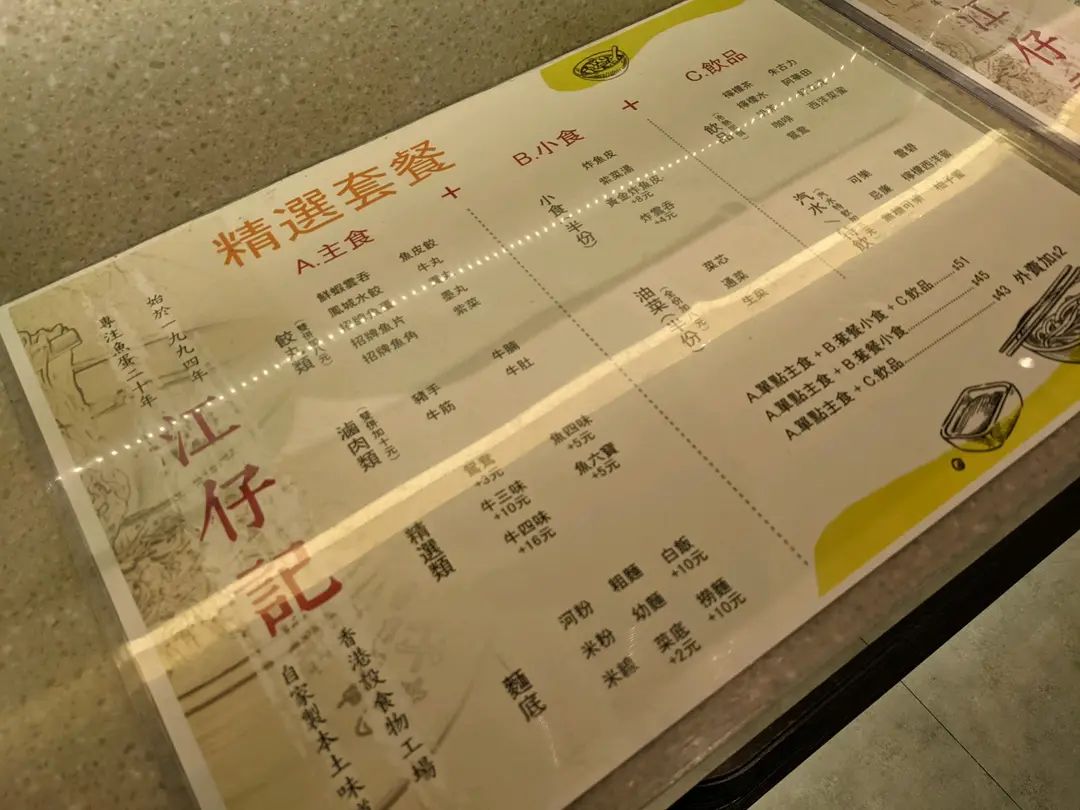 精選套餐
始於一九九四年
專注魚蛋二十年
江仔記
香港設食物工場
自家製本土味
A.主食
+
B.小食
+
C.飲品
餃丸類
鮮蝦雲吞
魚皮餃
鳳城水餃
牛丸
招牌魚片
墨丸
招牌魚角
紫菜
滷肉類
(雙拼加十元)
豬手
牛腩
牛筋
牛肚
精選類
鴛鴦
+3元
魚四味
+5元
牛三味
+10元
魚六寶
+5元
牛四味
+16元
麵底
河粉
粗麵
白飯
+10元
米粉
幼麵
撈麵
+10元
米線
菜底
+2元
小食(半份)
炸魚皮
紫菜湯
黃金炸魚皮
+8元
炸雲吞
+4元
油菜(半份)
菜芯
通菜
生菜
飲品
檸檬茶
朱古力
檸檬水
阿華田
咖啡
西洋菜蜜
鴛鴦
汽水
可樂
雪碧
忌廉
檸檬西洋蜜
柚子蜜
A.單點主食 + B.套餐小食 + C.飲品......$51
A.單點主食 + B.套餐小食......$45
A.單點主食 + C.飲品......$43
外賣加$2
江仔